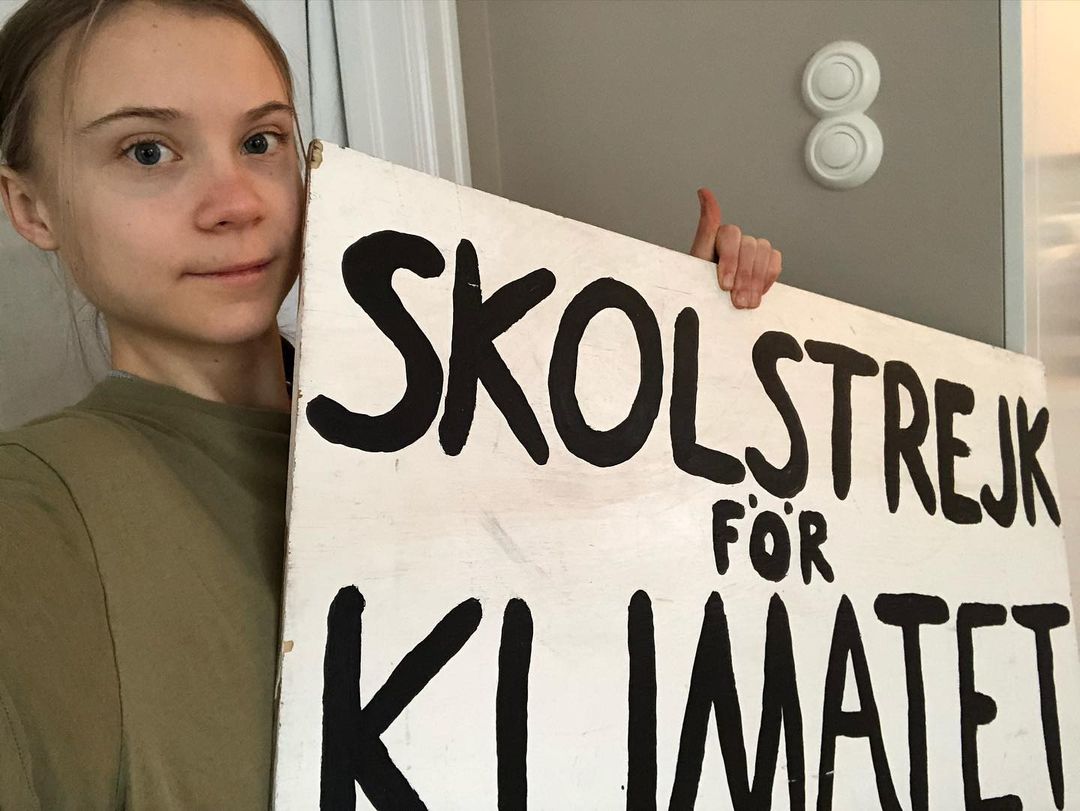 SKOLSTREJK
FÖR
KLIMATET